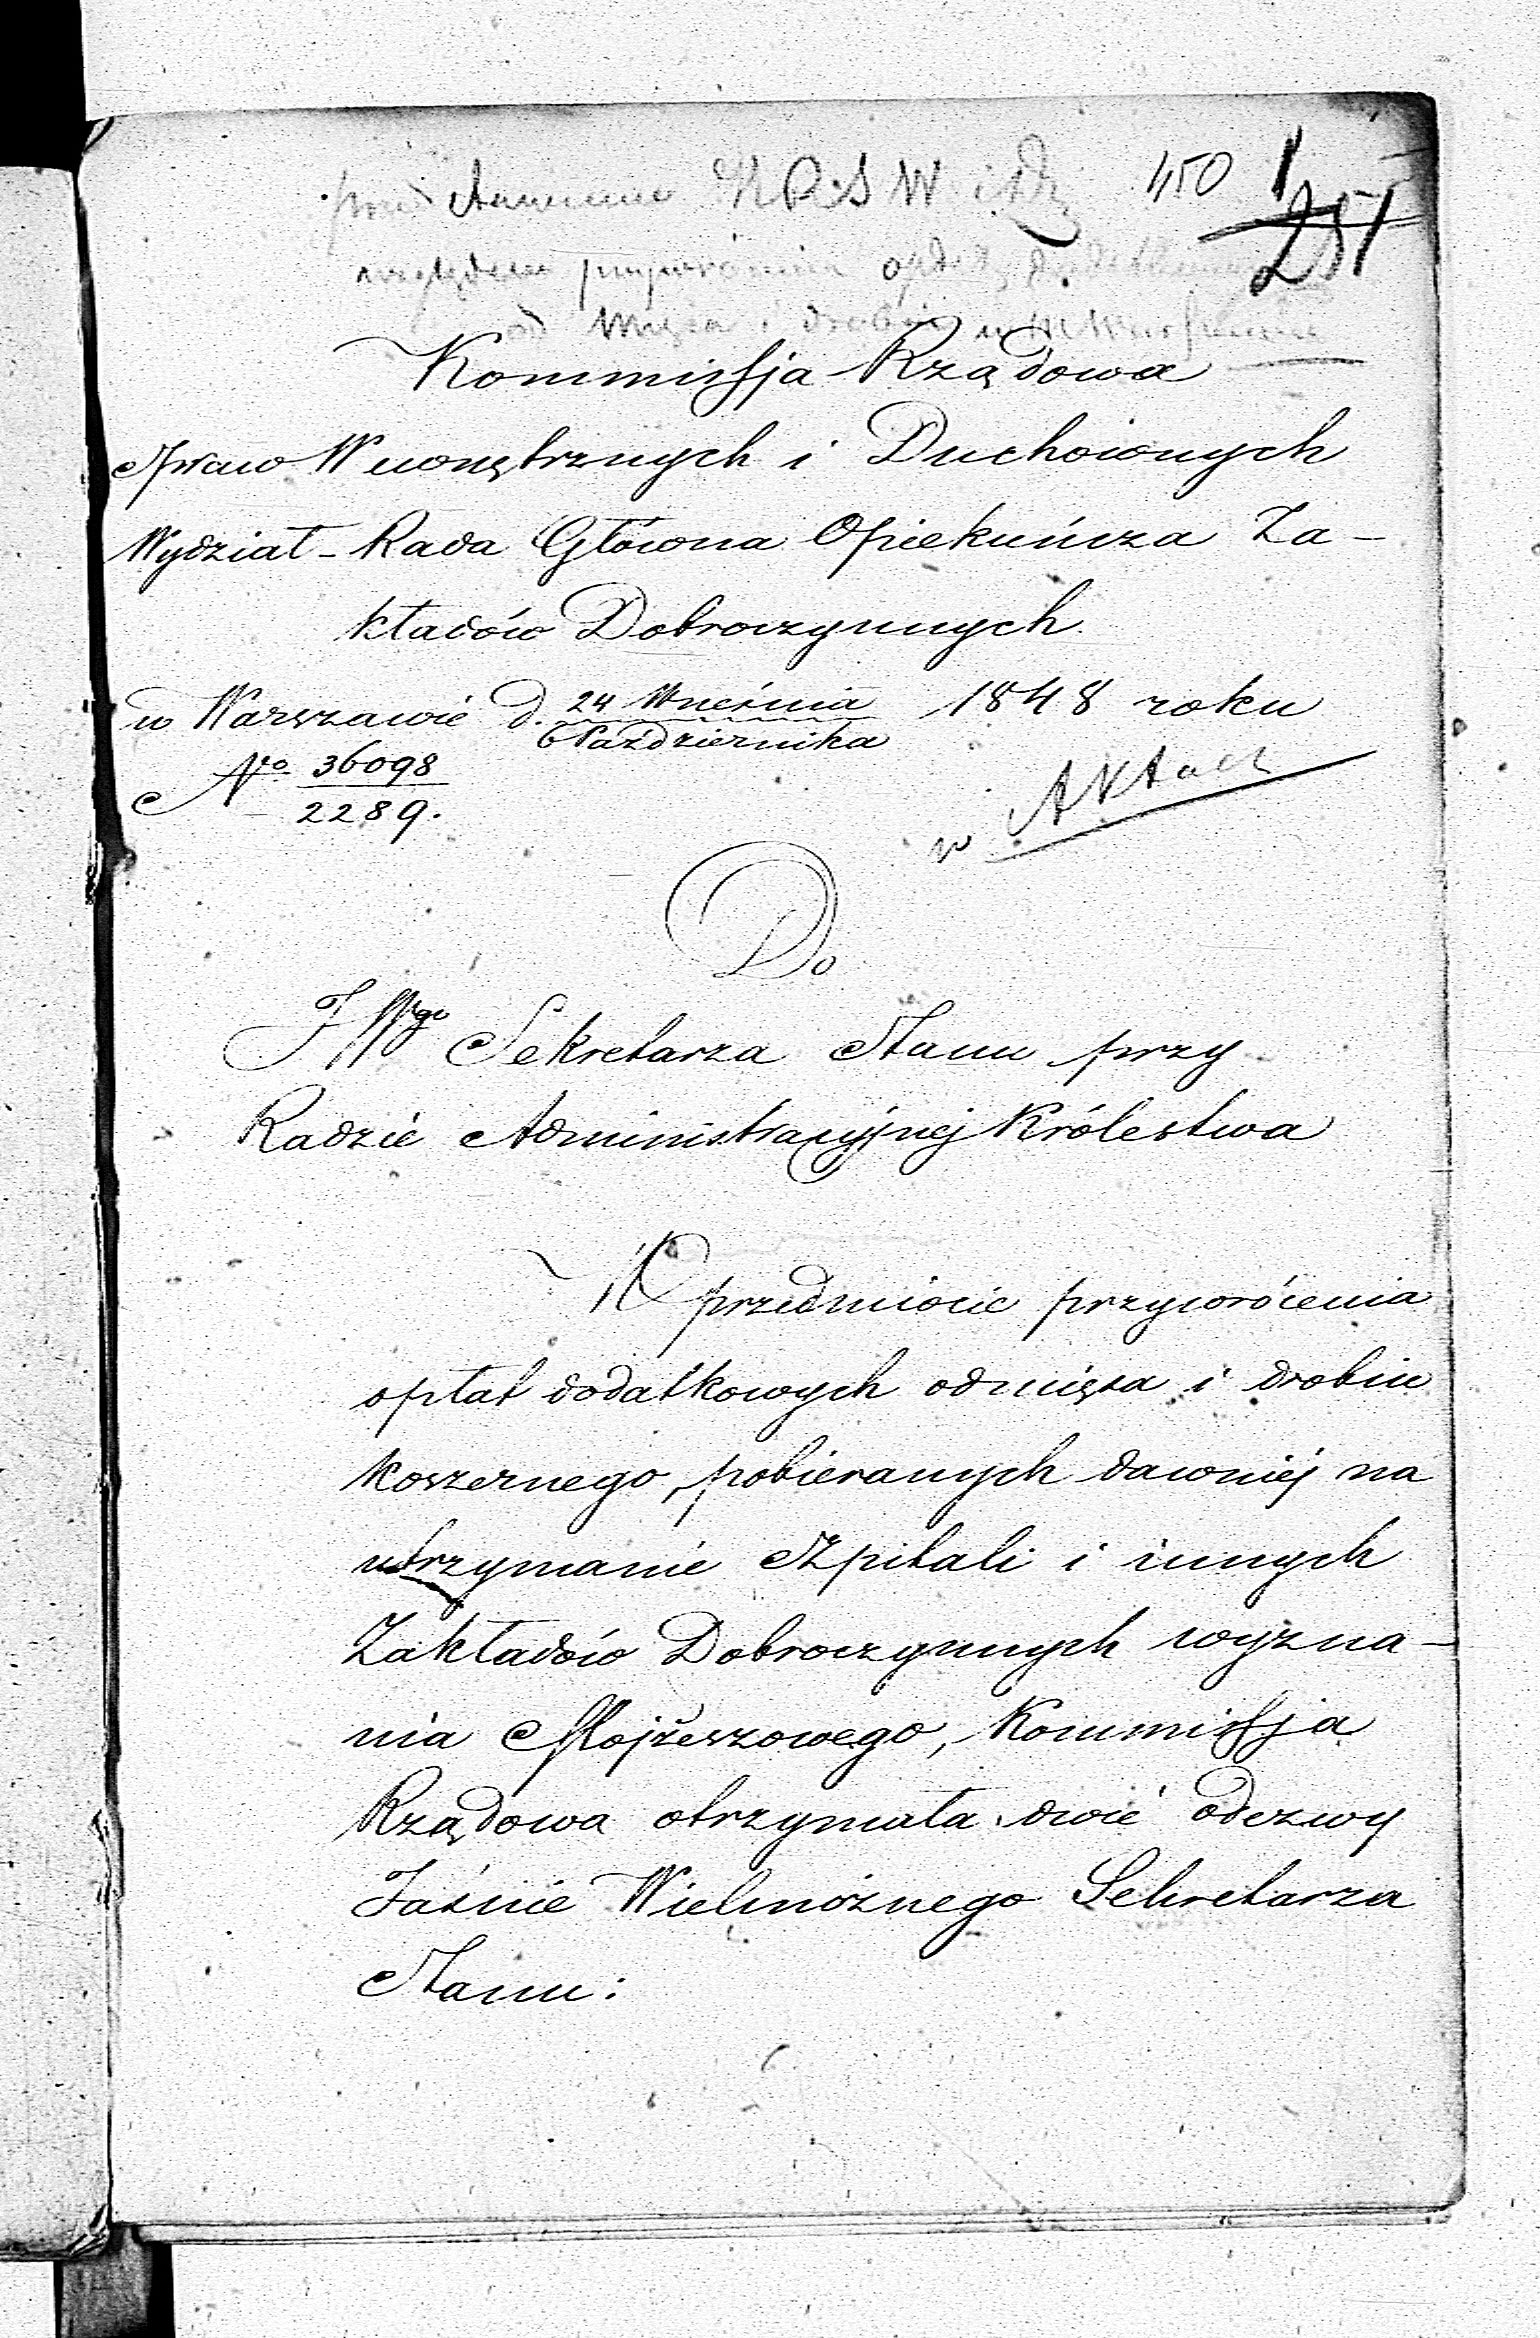 450 1
251
przedstawienie K R S W i D
względem przywrócenia opłat dodatkowych
od mięsa i drobiu w M Warszawie
Kommissja Rządowa
Spraw Wewnętrznych i Duchownych
Wydział - Rada Główna Opiekuńcza Za-
kładów Dobroczynnych
w Warszawie d. 24 Września 1848 roku
6 Października
No 36098
2289.
w Aktach
Do
JWgo Sekretarza Stanu przy
Radzie Administracyjnej Królestwa
W przedmiocie przywrócenia
opłat dodatkowych od mięsa i drobiu
koszernego, pobieranych dawniej na
utrzymanie Szpitali i innych
Zakładów Dobroczynnych wyzna-
nia Mojżeszowego, Kommissja
Rządowa otrzymała dwie odezwy
Jaśnie Wielmożnego Sekretarza
Stanu: